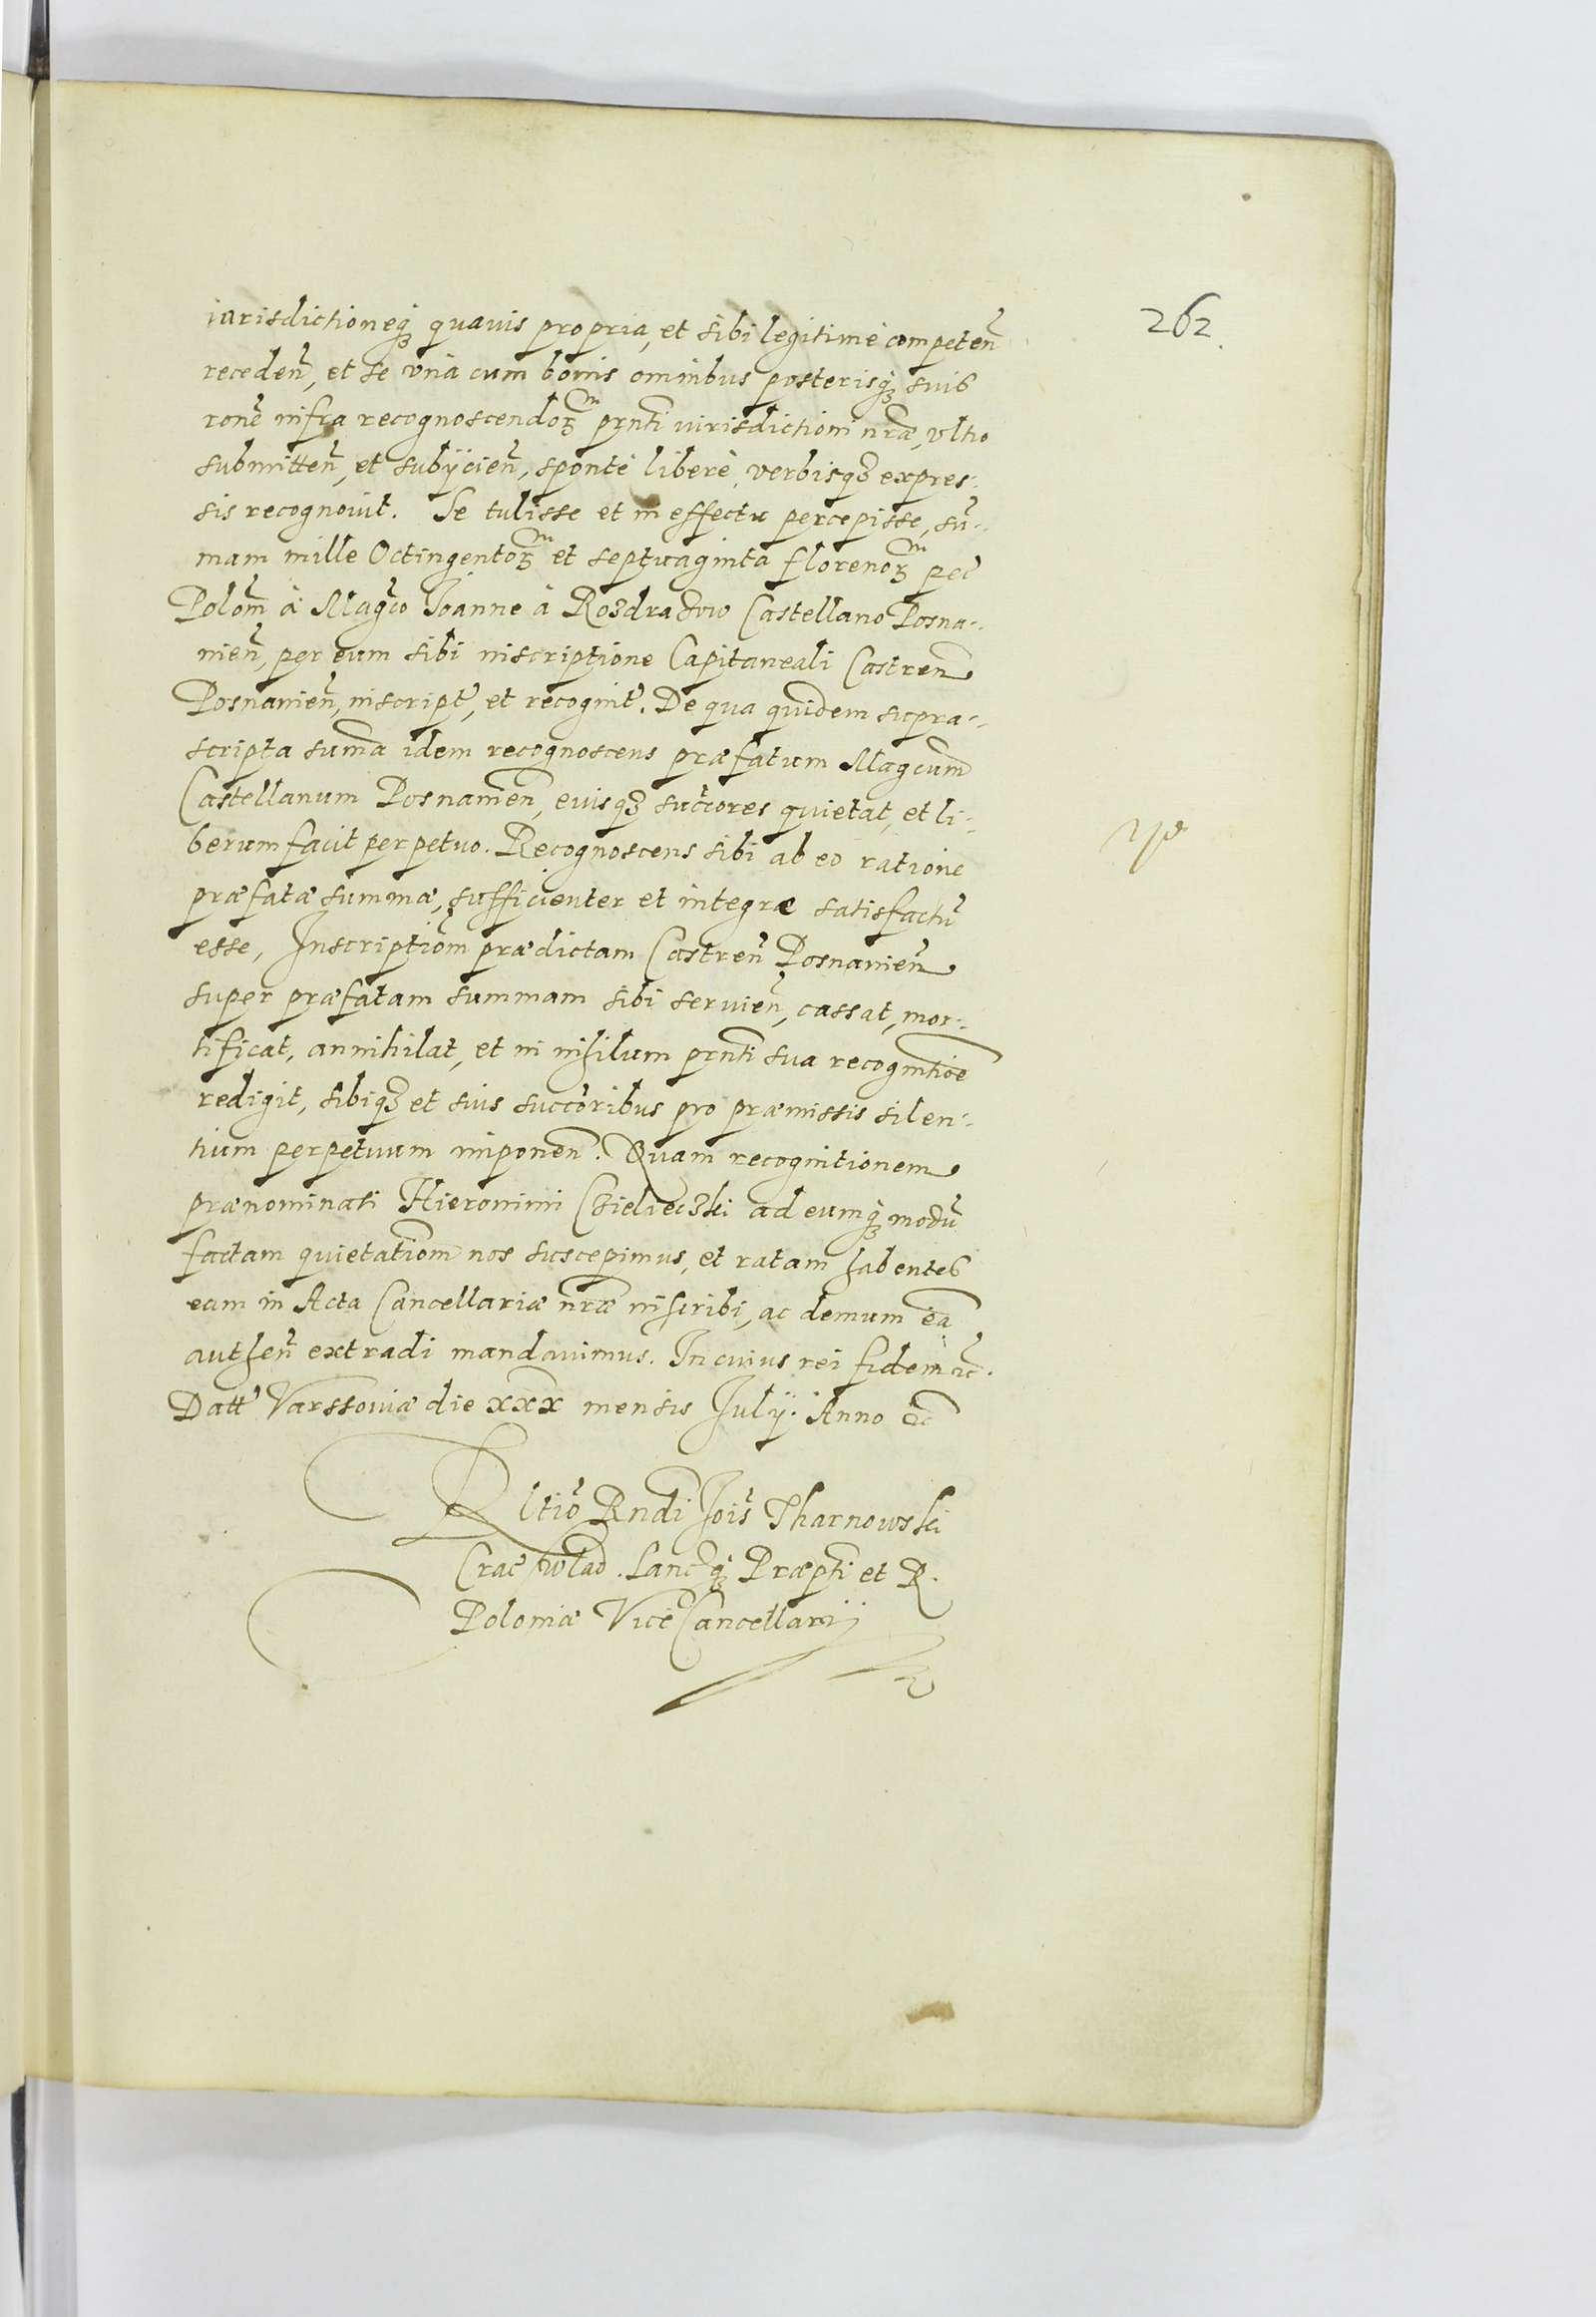 262.
iurisdictioneq₃ quauis propria, et sibi legitime competeñ
recedeñ, et se vnà cum bonis omnibus posterisq₃ suis
rone infra recognoscendoꝝm prnti iurisdictioni nræ, vltro
submitteñ, et subÿcieñ, sponte libere, verbisq₃ expres-
sis recognouit. Se tulisse et in effectu percepisse, sũ-
mam mille Octingentoꝝm et septuaginta florenoꝝm pec̃
Poloñ à Magco Joanne à Rozdrazow Castellano Posna-
nieñ, per eum sibi inscriptione Capitaneali Castreñ
Posnanieñ, inscript̃, et recognit̃. De qua quidem supra-
scripta sum̃a idem recognoscens præfatum Magcum
Castellanum Posnanieñ, eiusq₃ succores quietat, et li-
berum facit perpetuo. Recognoscens sibi ab eo ratione
præfatæ summæ, sufficienter et integræ satisfactũ
esse, Inscriptiom̃ prædictam Castreñ Posnanieñ
super præfatam summam sibi seruieñ, cassat, mor-
tificat, annihilat, et in nihilum prnti sua recognitioe
redigit, sibiq₃ et suis succoribus pro præmissis silen-
tium perpetuum imponeñ. Quam recognitionem
prænominati Hieronimi Czielieczki ad eumq₃ modũ
factam quietatiom̃ nos suscepimus, et ratam habentes
eam in Acta Cancellariæ nræ inscribi, ac demum eã
autheñ extradi mandauimus. In cuius rei fidem ꝛc̃.
Datt̃ Varssouiæ die xxx mensis Julÿ. Anno ꝛc̃
Rltio Rndi Jois Tharnowski
Crac̃ Wlad. Lanc̃q₃ Præpti et R.
Poloniæ Vice Cancellarij